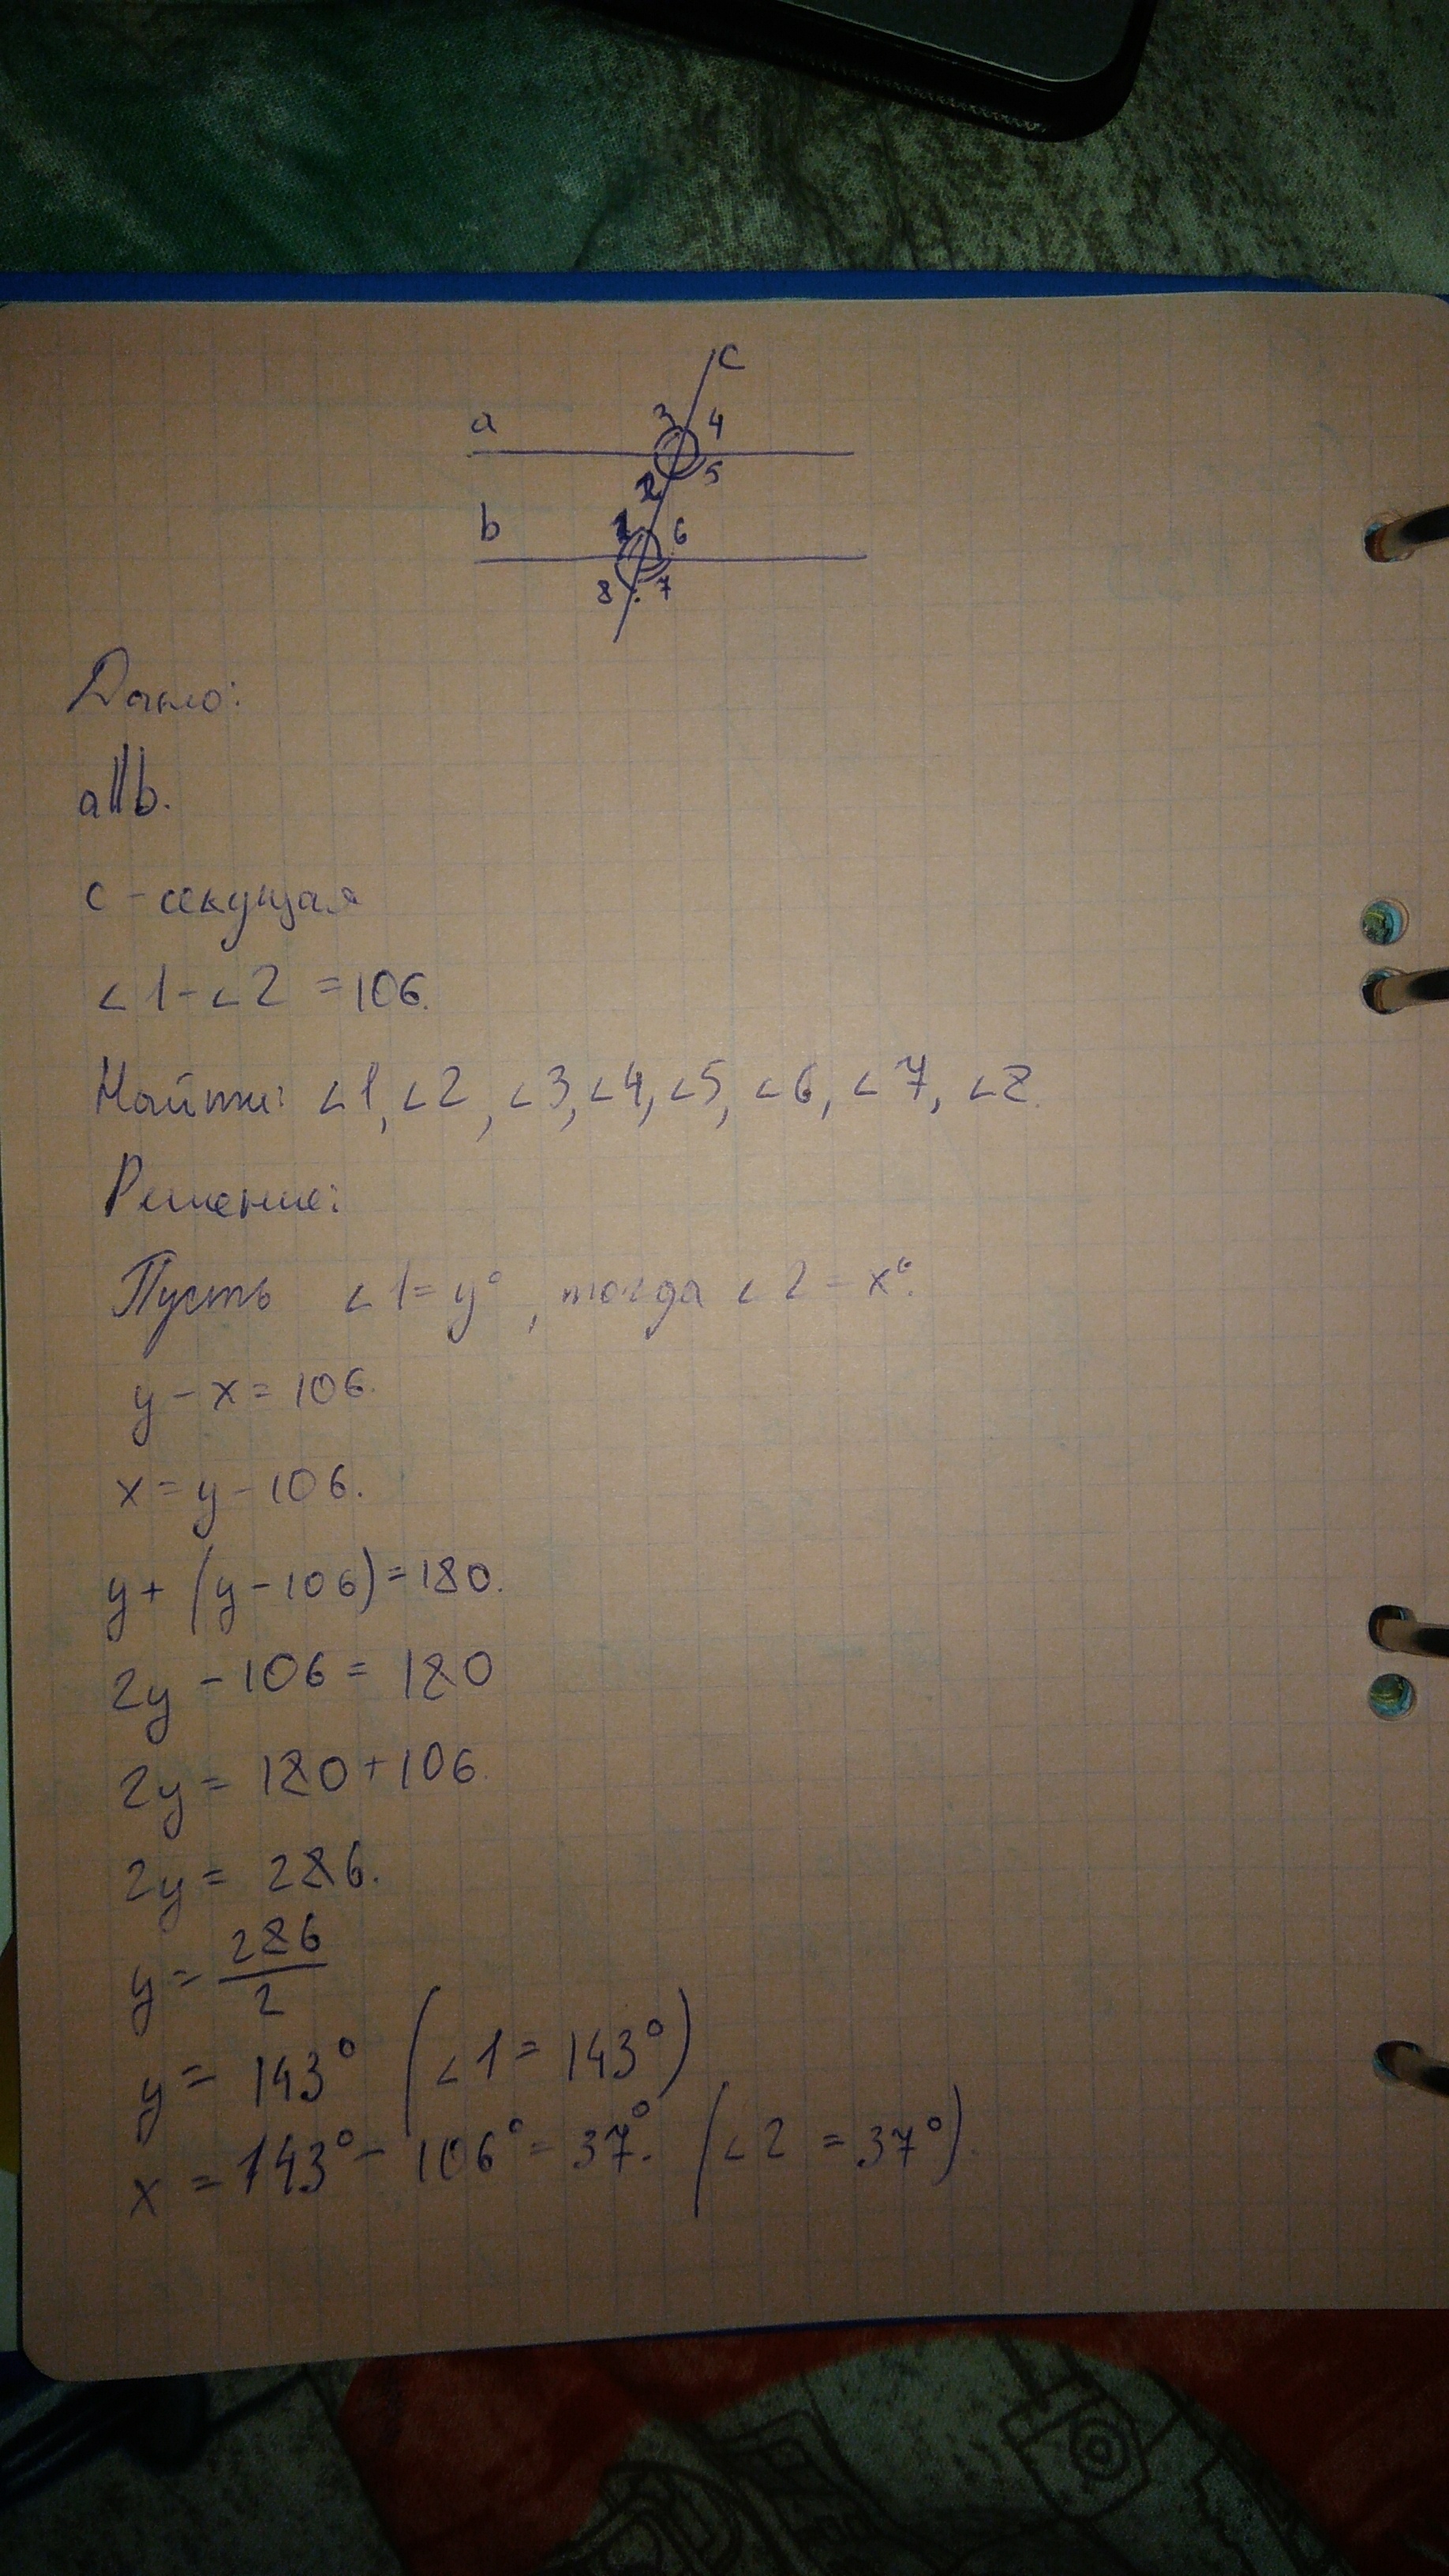 c
a 3 4
2 5
b 1 6
8 7
Дано:
a||b.
c - секущая
∠1-∠2 = 106.
Найти: ∠1, ∠2, ∠3, ∠4, ∠5, ∠6, ∠7, ∠8.
Решение:
Пусть ∠1= y°, тогда ∠2 = x°.
y - x = 106.
x = y - 106.
y + (y - 106) = 180.
2y - 106 = 180
2y = 180 + 106.
2y = 286.
y = 286/2
y = 143° (∠1 = 143°)
x = 143° - 106° = 37°. (∠2 = 37°).